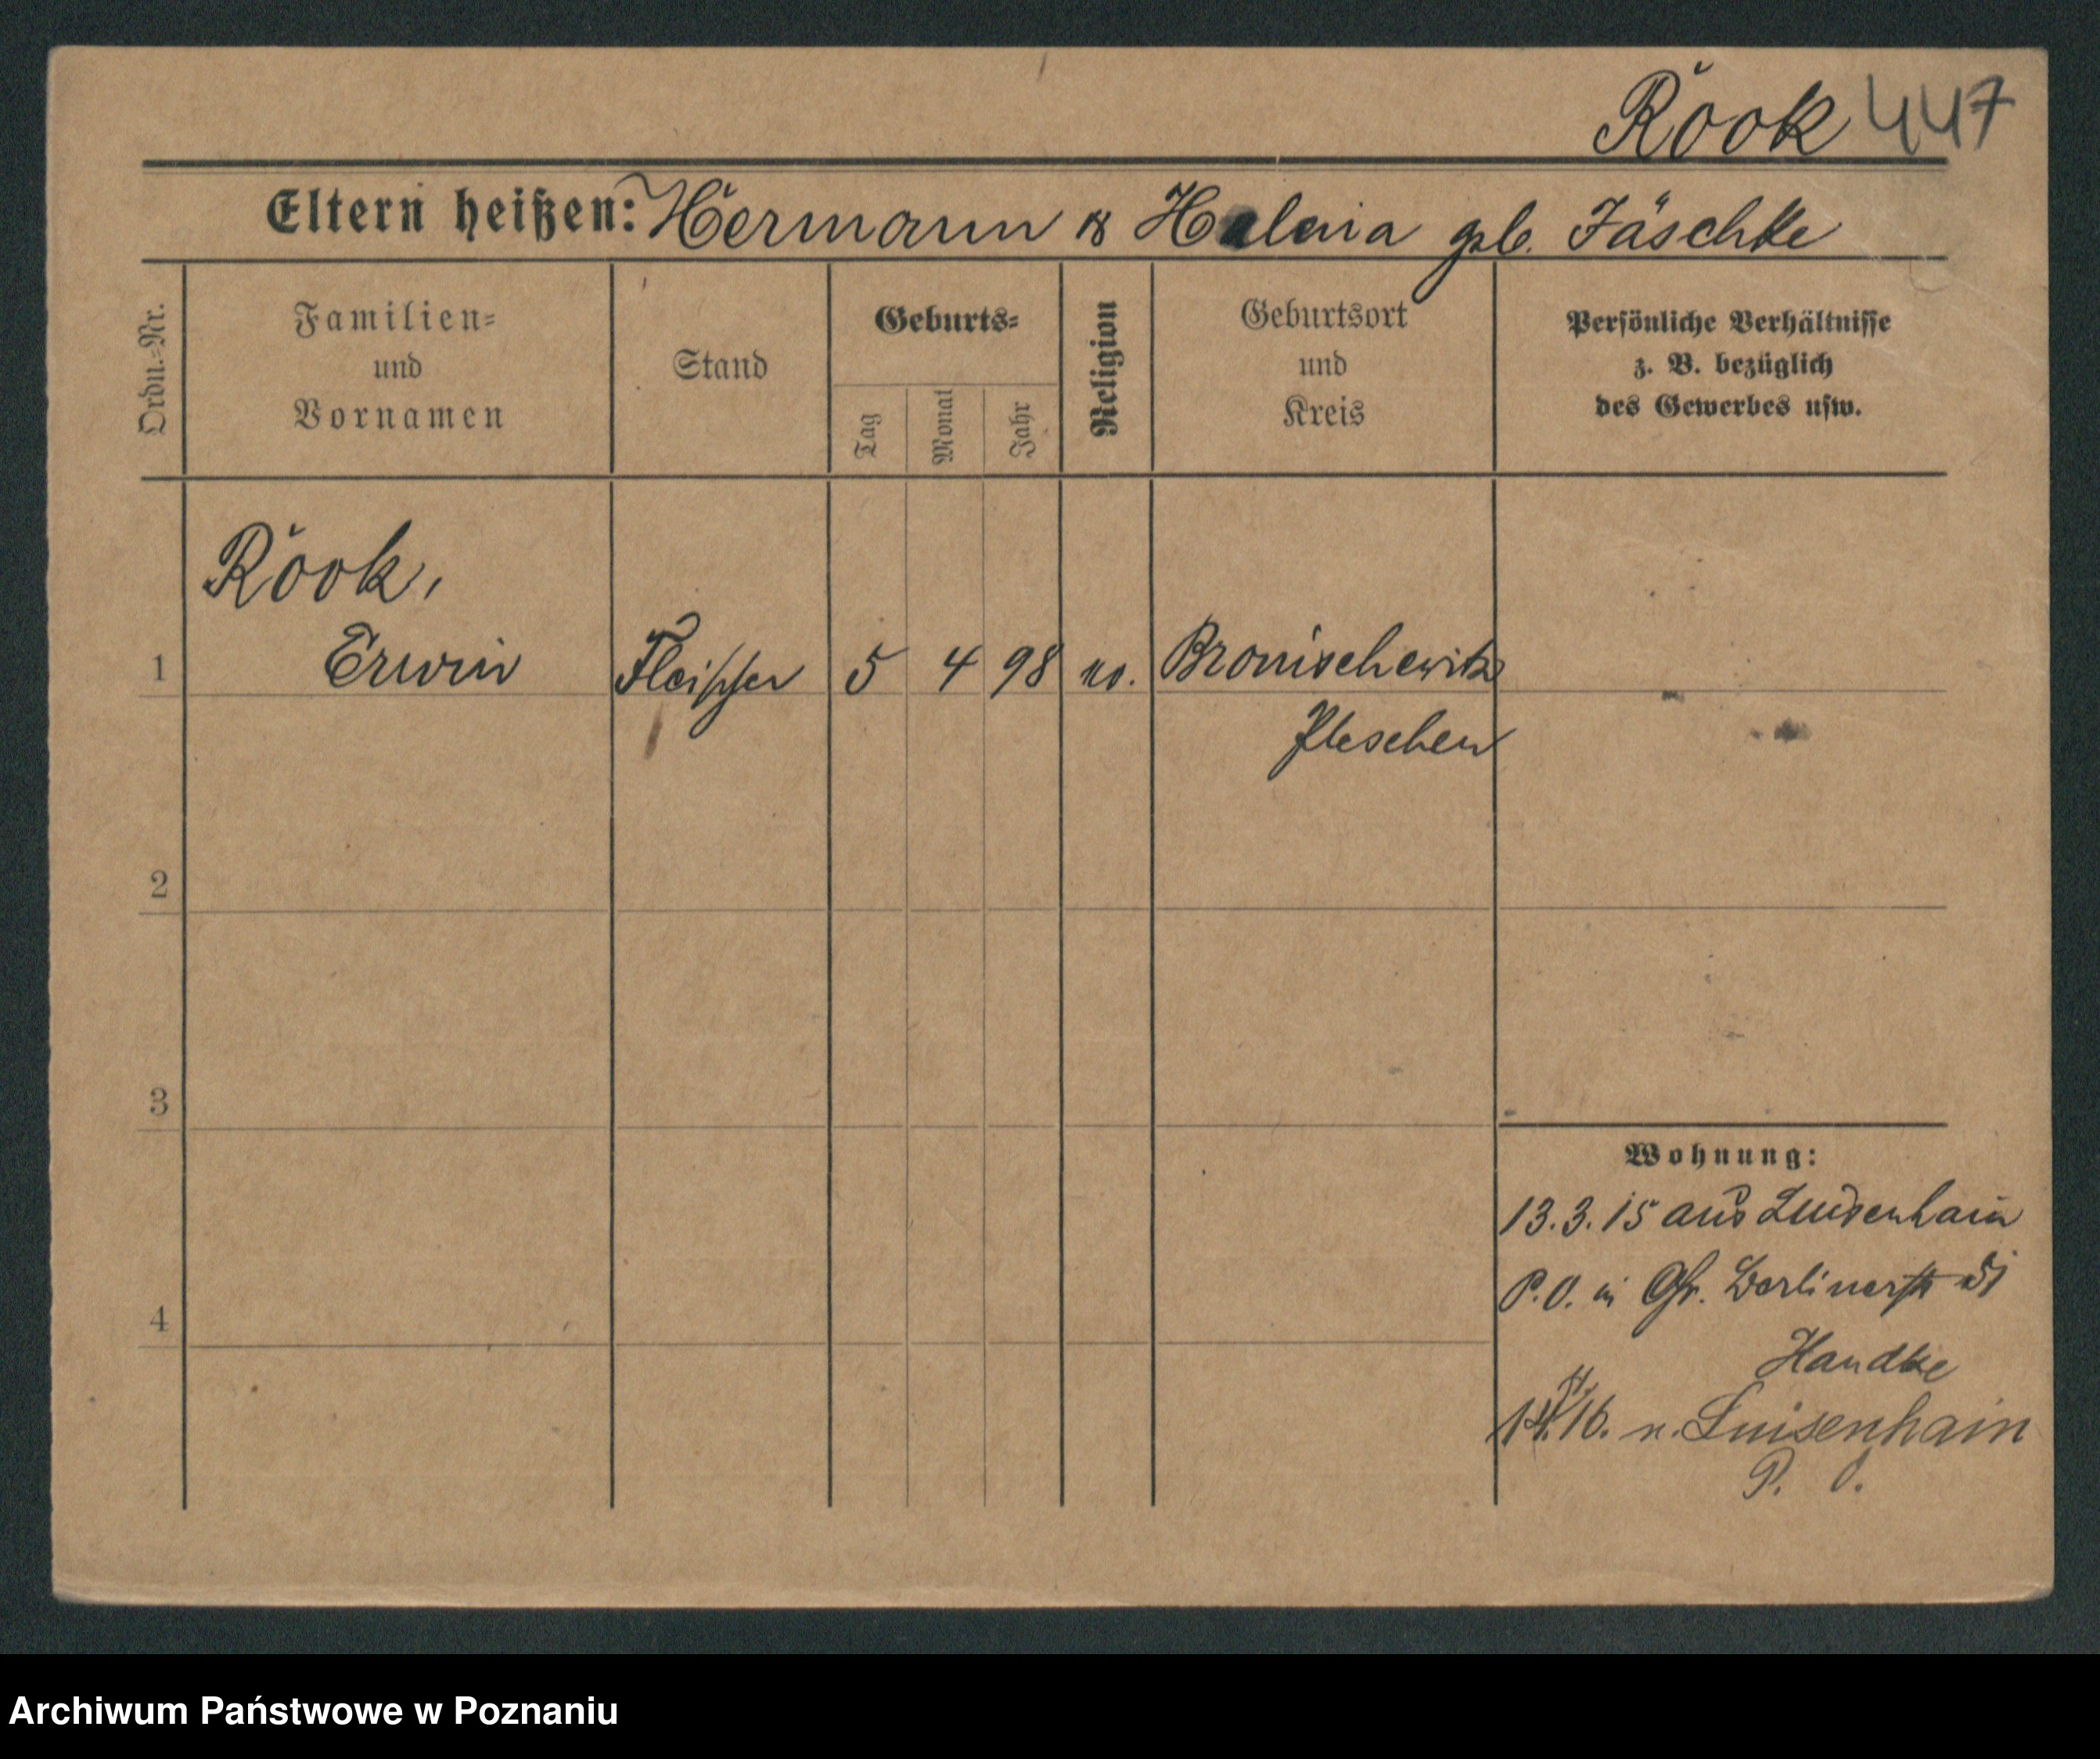 Röok 447
Eltern heißen: Hermann & Helena geb. Jäschke
Ordn.-Nr.
Familien-
und
Vornamen
Stand
Geburts-
Tag
Monat
Jahr
Religion
Geburtsort
und
Kreis
Persönliche Verhältnisse
z. B. bezüglich
des Gewerbes usw.
Röok,
1 Erwin Fleischer 5 4 98 ev. Bronischewitz
Pleschen
2
3
Wohnung:
13.3.15 aus Luisenhain
P.O. in Gr. Berlinerstr 51
4
Handke
16. n. Luisenhain
P. O.
Archiwum Państwowe w Poznaniu